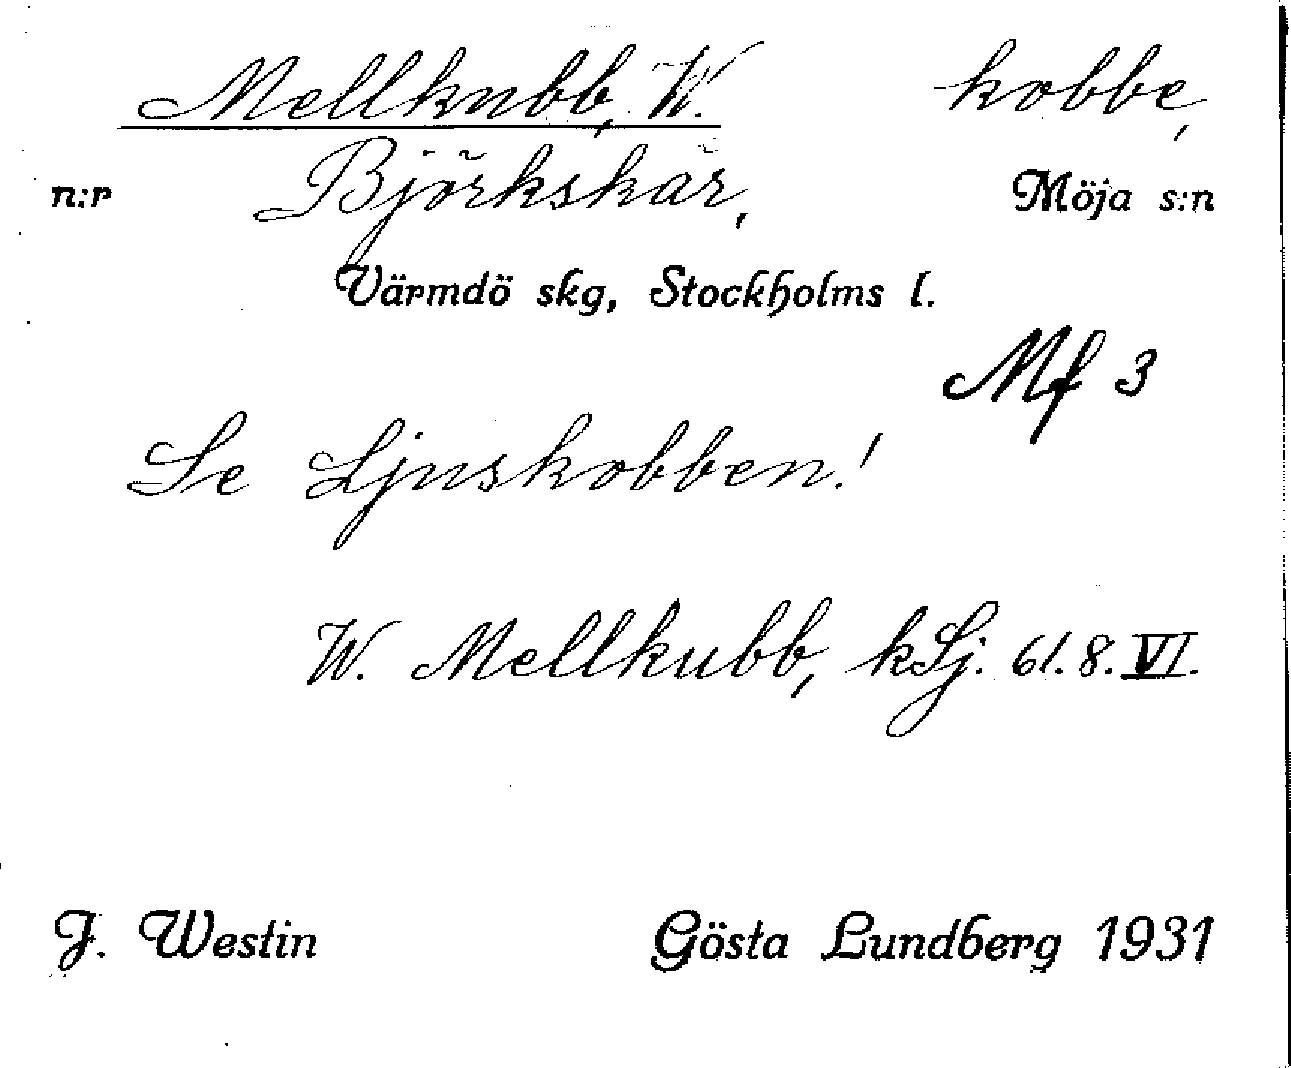 Mellkubb, W. kobbe,
n:r Björkskär, Möja s:n
Värmdö skg, Stockholms l.
Mf 3
Se Ljuskobben!
W. Mellkubb, kLj. 61. 8. VI.
J. Westin Gösta Lundberg 1931